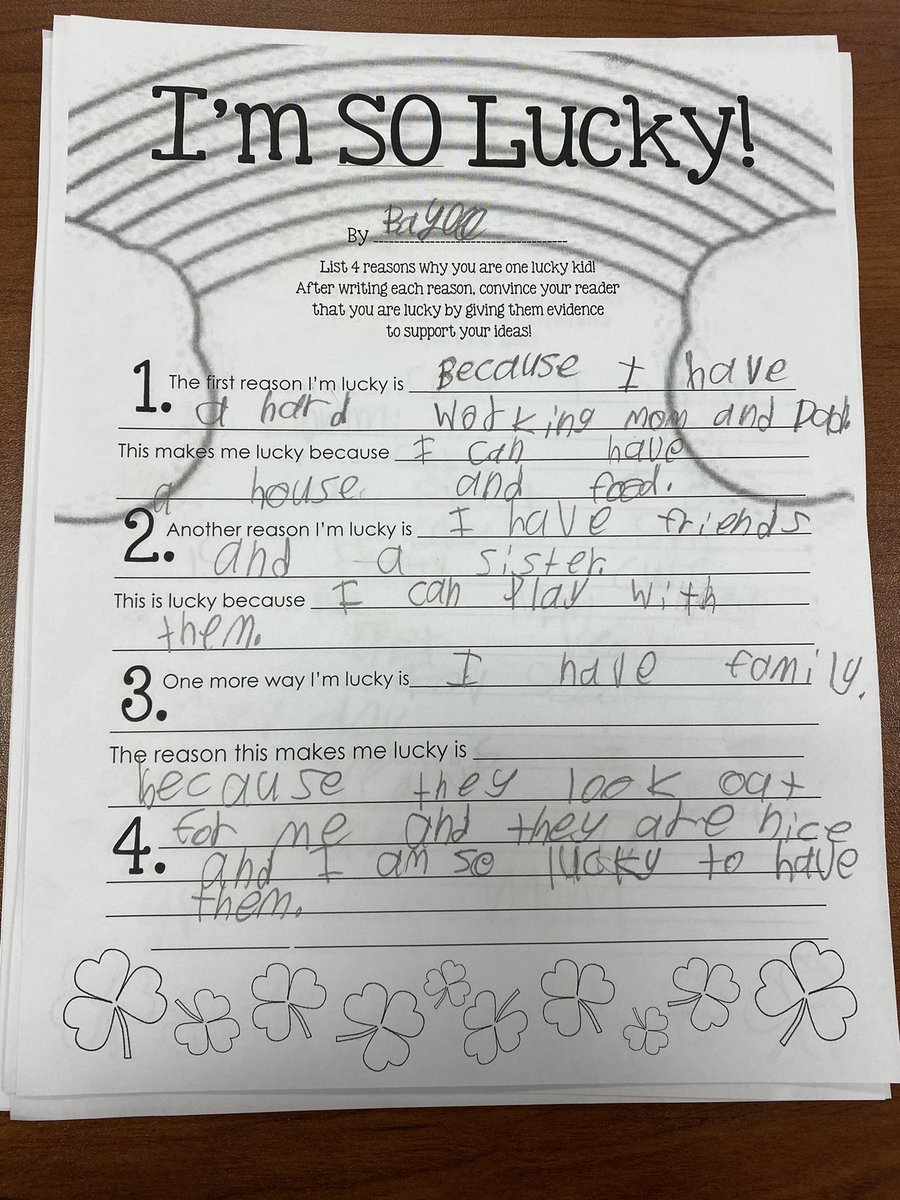 I'm SO Lucky!
By
List 4 reasons why you are one lucky kid!
After writing each reason, convince your reader
that you are lucky by giving them evidence
to support your ideas!
1. The first reason I'm lucky is Because I have
a hard working mom and Dad.
This makes me lucky because I can have
a house and food.
2. Another reason I'm lucky is I have friends
and a sister.
This is lucky because I can play with
them.
3. One more way I'm lucky is I have family.
The reason this makes me lucky is
because they look out
4. for me and they are nice
and I am so lucky to have
them.